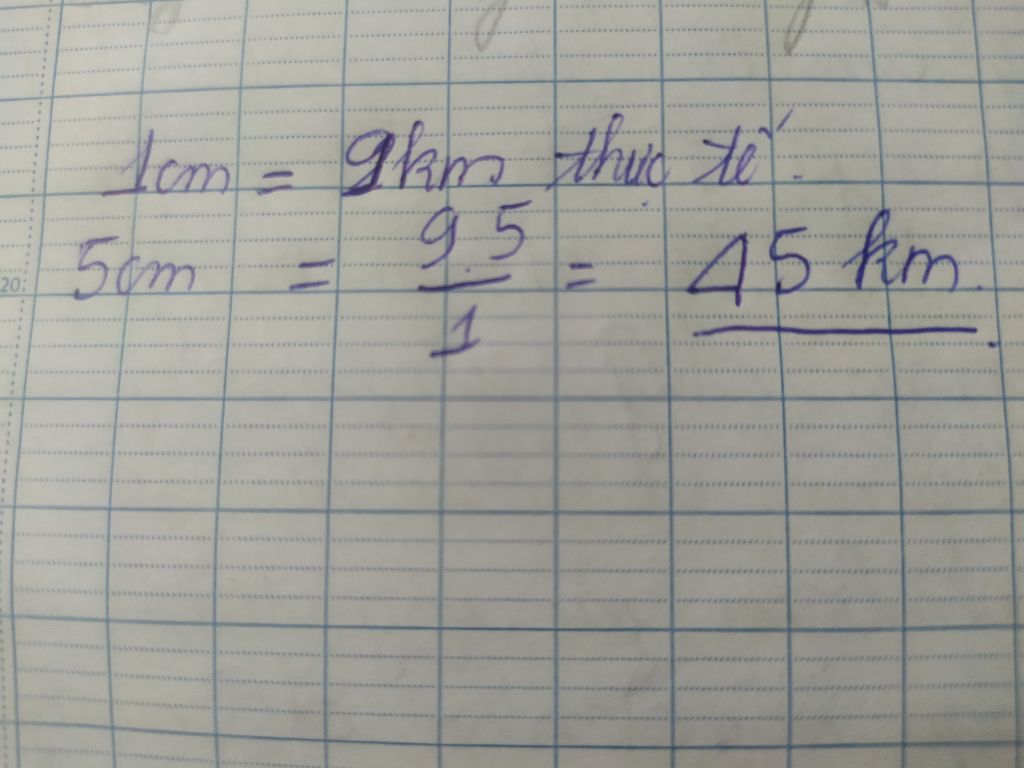 1cm = 9km thực tế.
5cm = 9.5/1 = 45 km.
20: